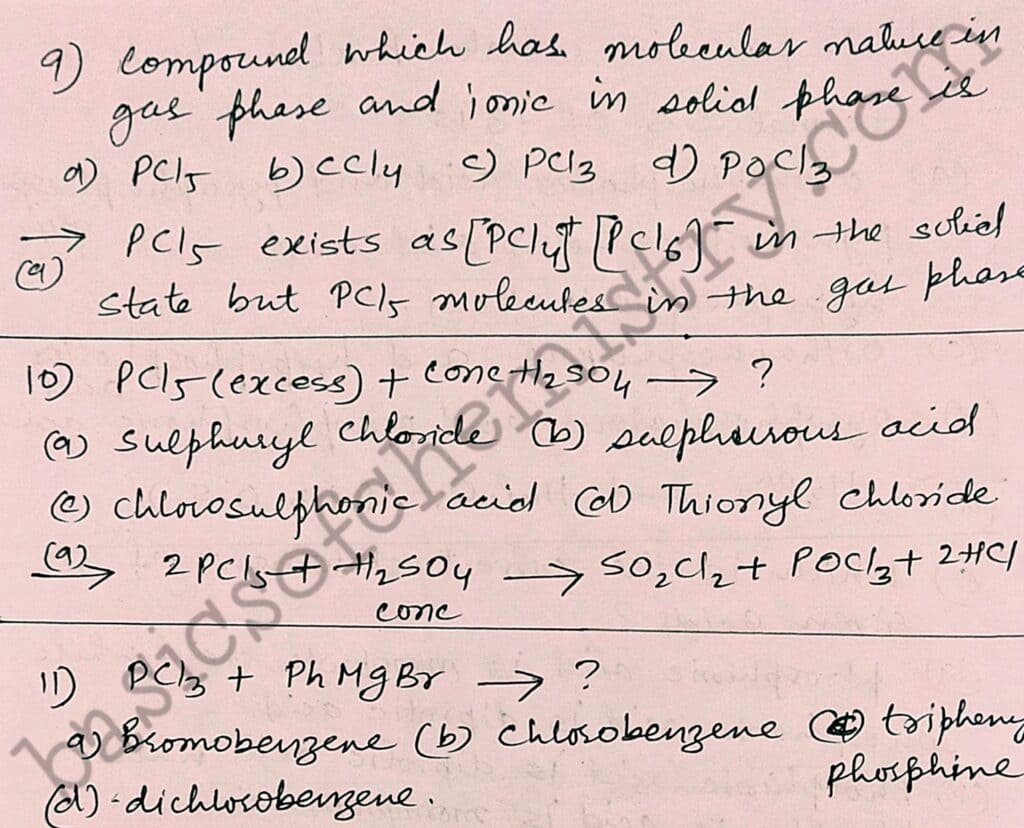 9) Compound which has molecular nature in
gas phase and ionic in solid phase is
a) PCl5 b) CCl4 c) PCl3 d) POCl3
→ PCl5 exists as [PCl4]+ [PCl6]- in the solid
(a)
state but PCl5 molecules in the gas phase
10) PCl5 (excess) + conc H2SO4 → ?
(a) Sulphuryl chloride (b) sulphurous acid
(c) chlorosulphonic acid (d) Thionyl chloride
(a) → 2PCl5 + H2SO4 → SO2Cl2 + POCl3 + 2HCl
conc
11) PCl3 + PhMgBr → ?
a) Bromobenzene (b) chlorobenzene (c) tripheny
phosphine
(d) dichlorobenzene.
basicsofchemistry.com